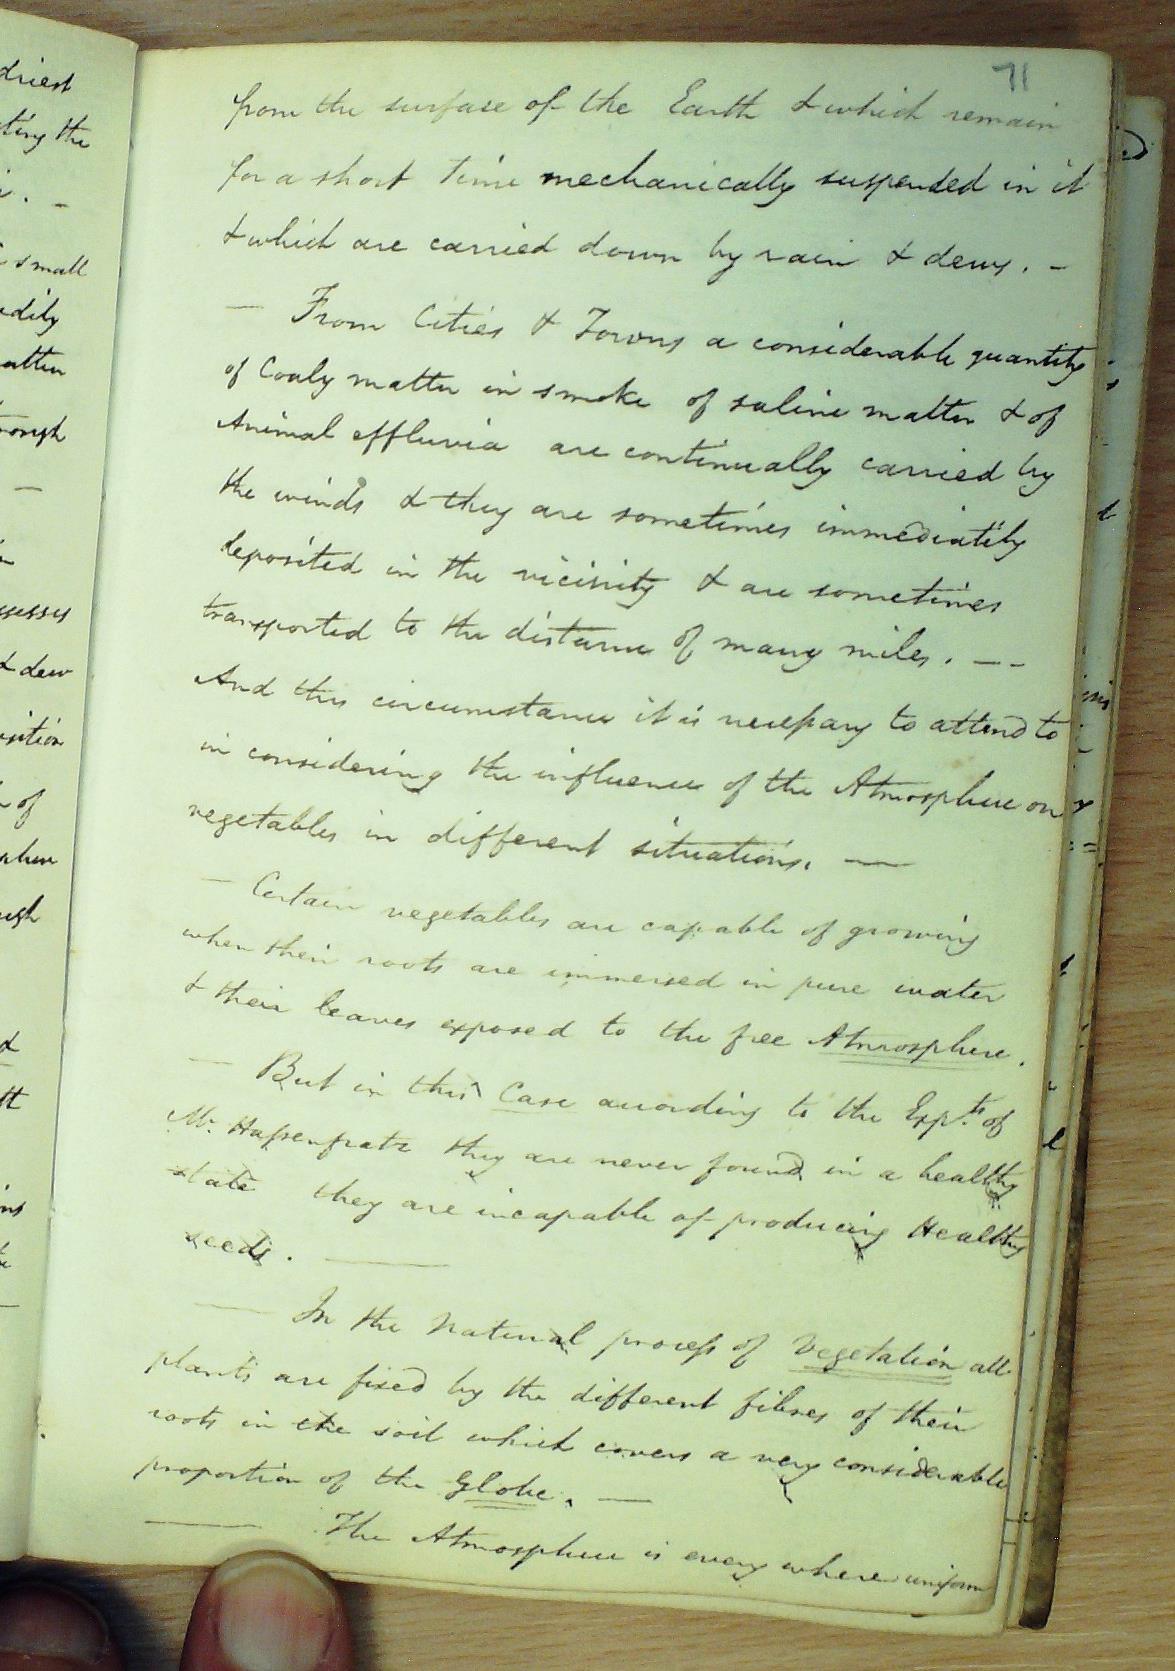 71
from the surface of the Earth & which remain
for a short time mechanically suspended in it
& which are carried down by rain & dews. -
— From Cities & Towns a considerable quantity
of Coaly matter in smoke of saline matter & of
Animal effluvia are continually carried by
the winds & they are sometimes immediately
deposited in the vicinity & are sometimes
transported to the distance of many miles. — -
And this circumstance it is necessary to attend to
in considering the influence of the Atmosphere on
vegetables in different situations. —
— Certain vegetables are capable of growing
when their roots are immersed in pure water
& their leaves exposed to the free Atmosphere.
— But in this Case according to the Exp.ts of
Mr. Hassenfratz they are never found in a healthy
state they are incapable of producing Healthy
seeds. —
— In the natural process of vegetation all
plants are fixed by the different fibres of their
roots in the soil which covers a very considerable
proportion of the Globe. —
— The Atmosphere is every where uniform
driest
ting the
small
adily
atter
rough
—
ssesses
& dew
sition
of